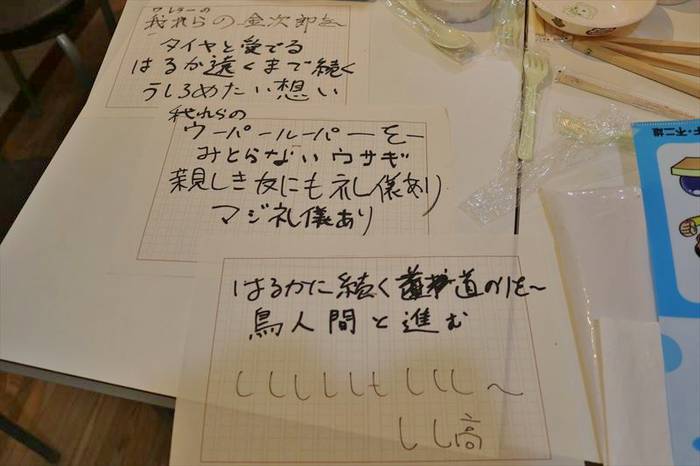 ワレラの
我れらの金次郎を
タイヤと愛でる
はるか遠くまで続く
うしろめたい想い
我れらの
ウーパールーパーをー
みとらないウサギ
親しき友にも礼儀あり
マジ礼儀あり
はるかに続く道のりを〜
鳥人間と進む
ししししもししし〜
しし高
不二雄